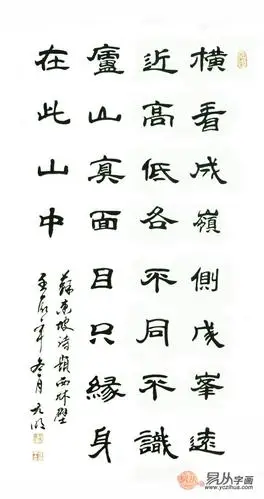 橫看成嶺側成峯遠
近高低各不同不識
廬山真面目只緣身
在此山中
蘇東坡詩題西林壁
壬辰年冬月
易从字画
www.yczihua.com